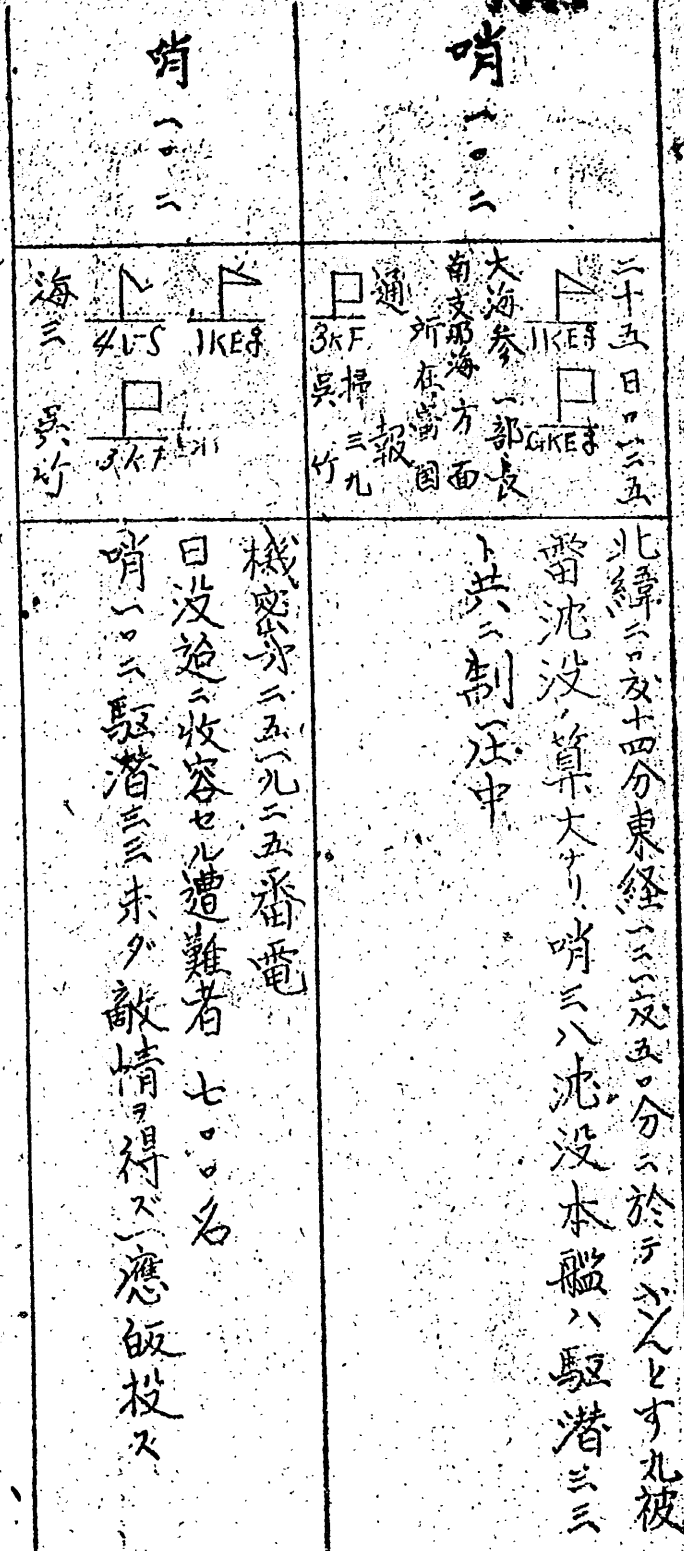 哨一〇二
二十五日〇一三五
1KEg GKEg
大海参一部長
南支那海方面
所在艦国
通報
掃三九
3KF 呉竹
北緯二〇度十四分東経一二一度五〇分ニ於テぶゞんとす丸被
雷沈没ノ算大ナリ、哨三八沈没本艦ハ駆潜三三
ト共ニ制圧中
哨一〇二
1KEg
4VS 3KF
海三 呉竹
機密第二五一九二五番電
日没迠ニ收容セル遭難者 七〇〇名
哨一〇二駆潜三三未ダ敵情ヲ得ズ一應皈投ス